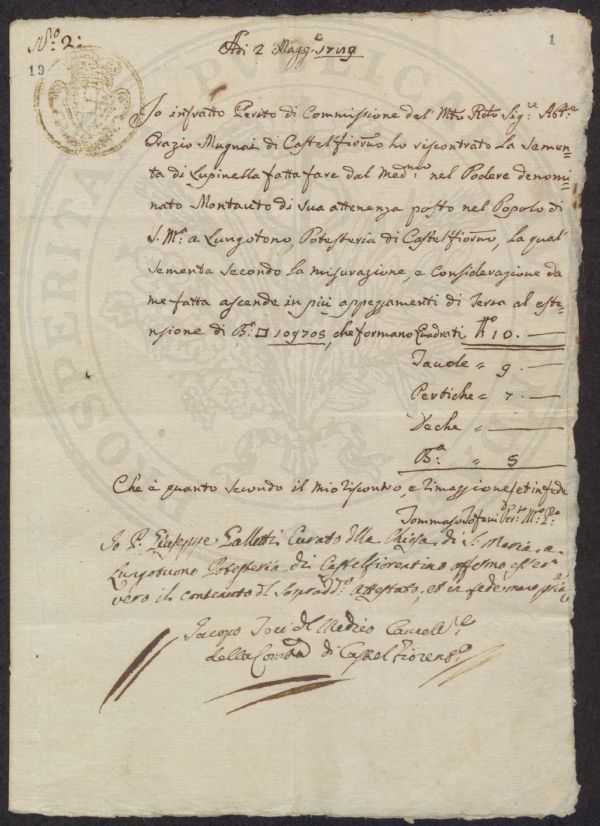 N.º 2:
1
19
Adi 2 Magg.º 1789
Io infratto Perito di Commissione del Mto Rdo Sig.re Abt.e
Orazio Mugnai di Castelfior.no ho riscontrato la Semen=
ta di Lupinella fatta fare dal Med.mo nel Podere denomi=
nato Montauto di sua attenenza posto nel Popolo di
S. M.a a Lungotono Potesteria di Castelfior.no, la qual
sementa secondo la misurazione, e considerazione da
me fatta ascende in più appezzamenti di Terra al este=
nsione di B.a □ 109705, che formano Quadrati N.º 10. —
Tavole " 9 —
Pertiche " 7. —
Deche " —
B.a " 5
Che è quanto secondo il mio riscontro, e
in fede
Tommaso
Io P. Giuseppe Galletti Curato della Chiesa di S. Maria a
Lungotuono Potesteria di Castelfiorentino affermo esser
vero il contenuto del Sopradd.o Attestato, ed in fede mano pp.a
Jacopo del Medico Cancell.e
della Comtà di Castel Fioren.o
PROSPERITA
PVBLICAE